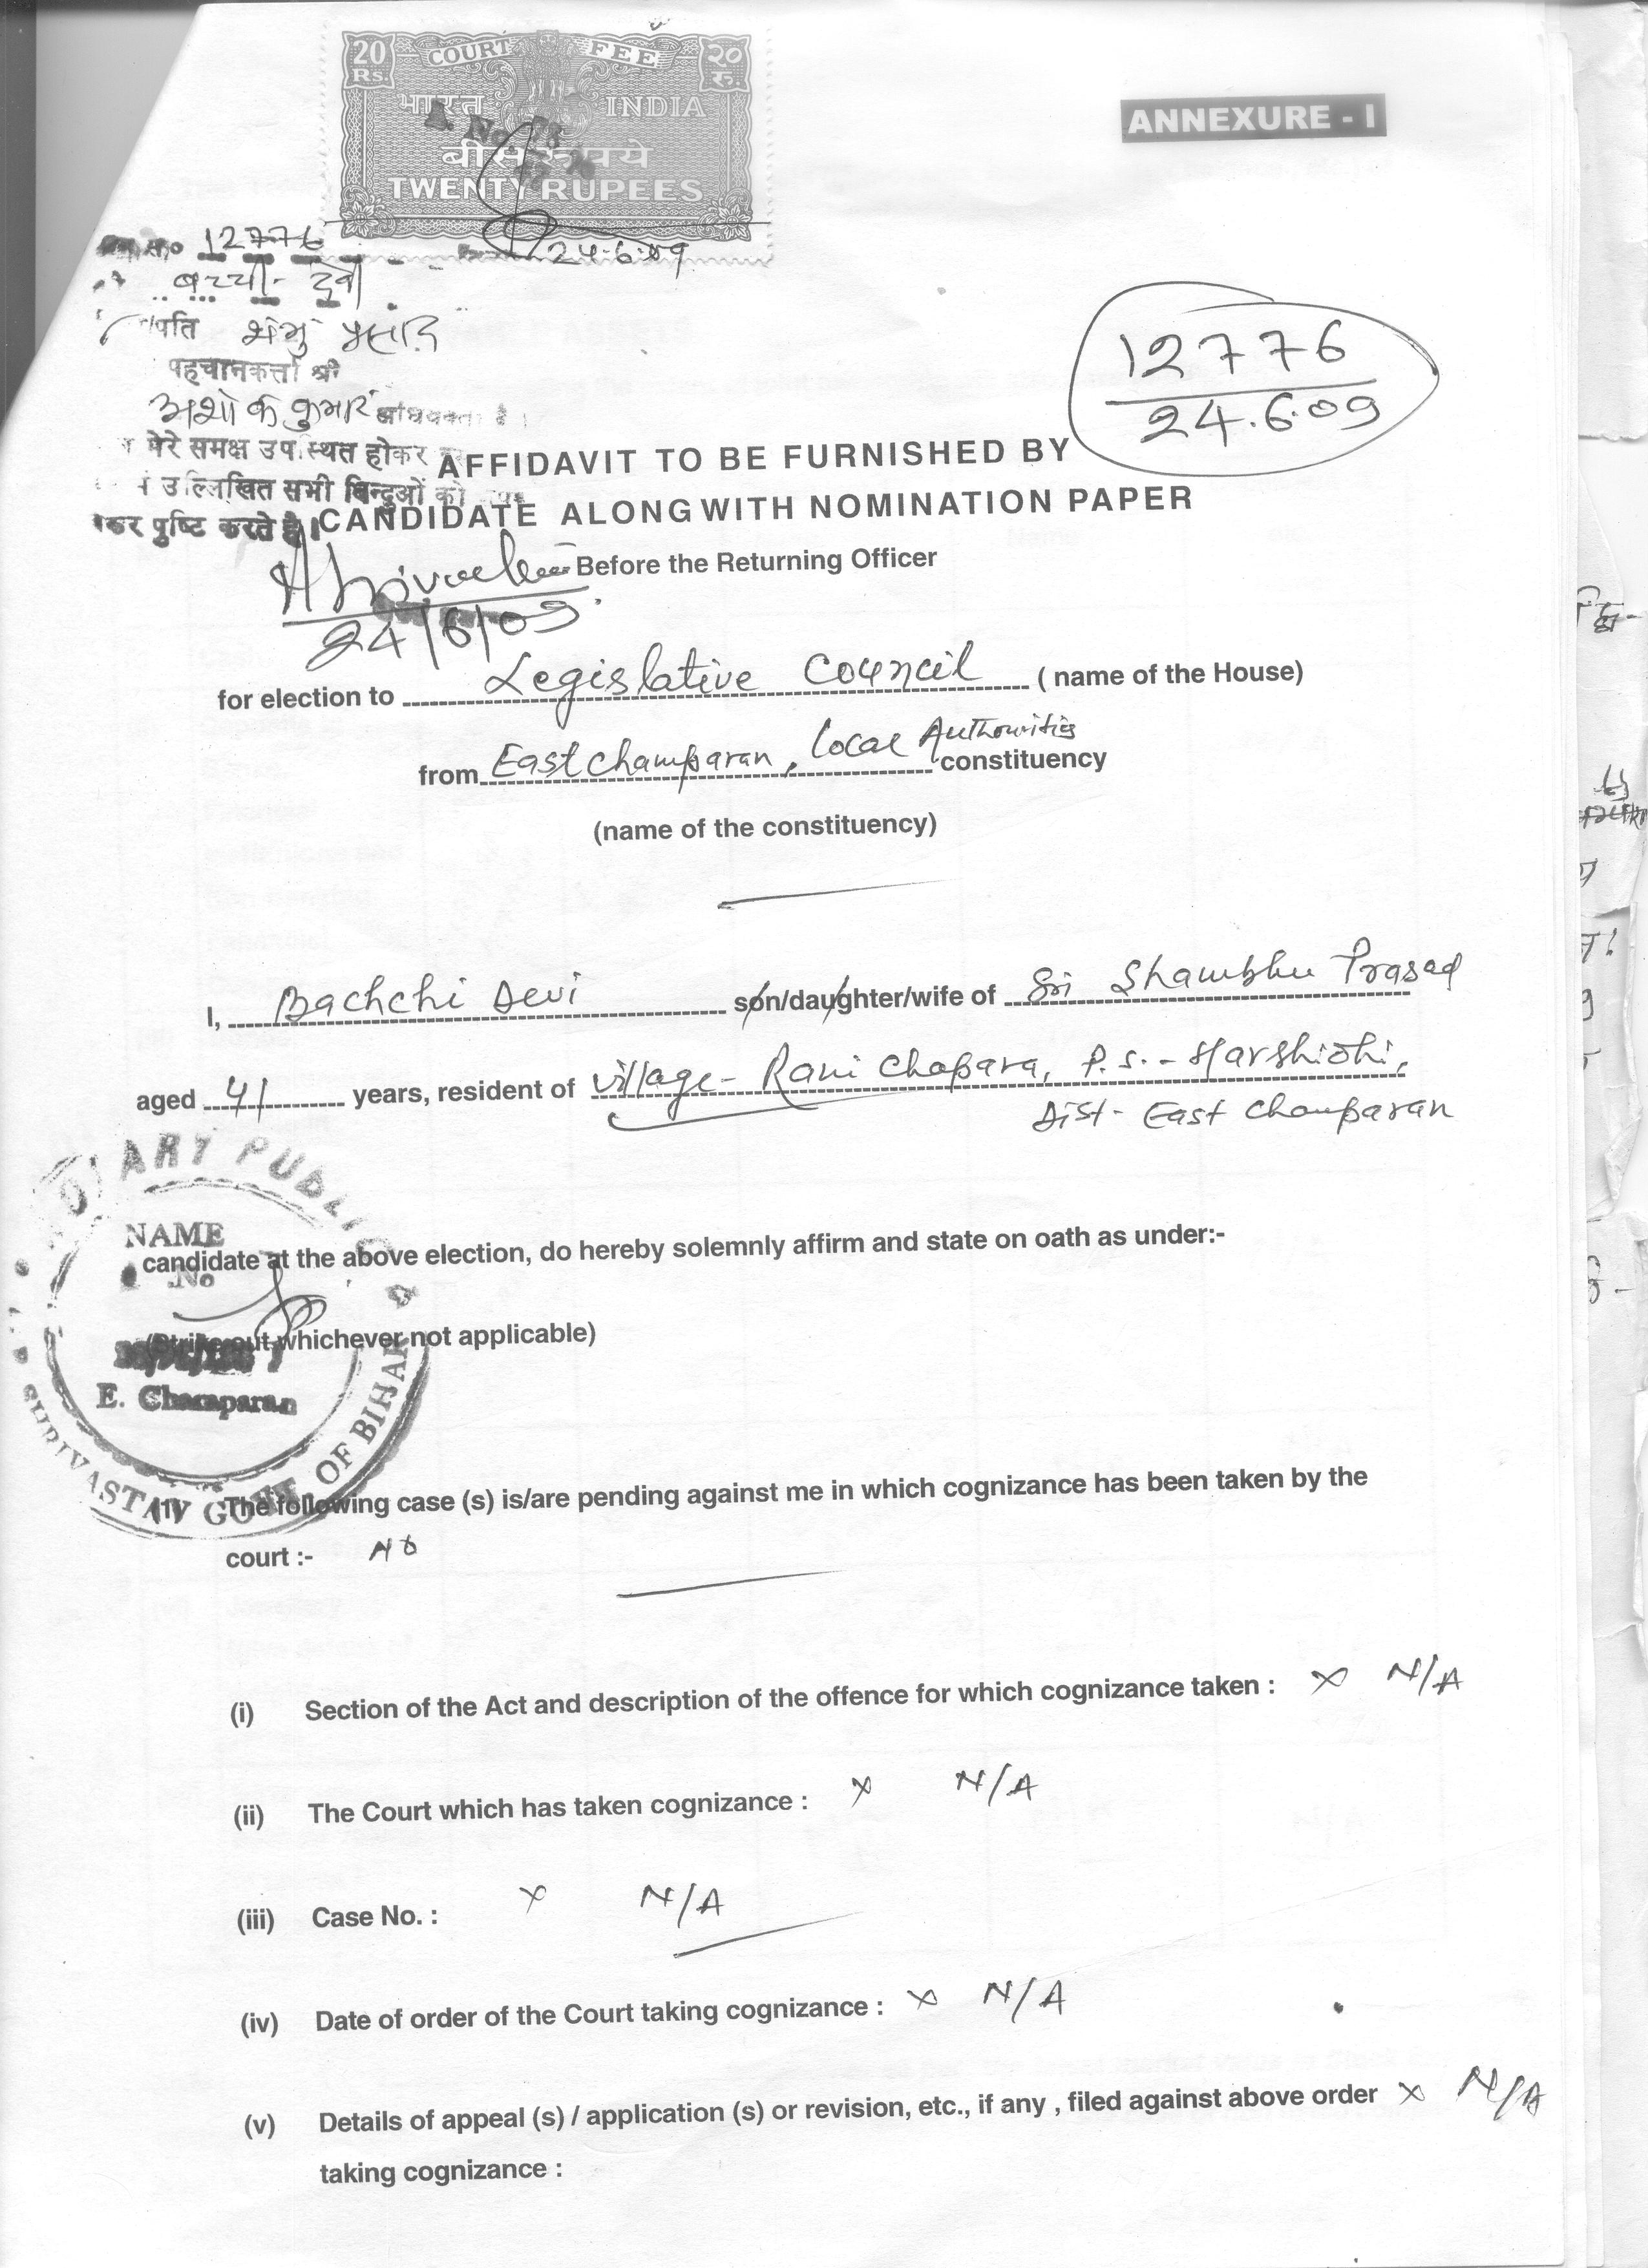 20 Rs. COURT FEE २० रु.
भारत INDIA
बीस रुपये
TWENTY RUPEES
ANNEXURE - I
12776
24-6-09
बच्ची देवी
पति शंभु प्रसाद
पहचानकर्त्ता श्री
अशोक कुमार अधिवक्ता है।
मेरे समक्ष उपस्थित होकर
उल्लिखित सभी बिन्दुओं को
कर पुष्टि करते है।
12776
24.6.09
AFFIDAVIT TO BE FURNISHED BY
CANDIDATE ALONGWITH NOMINATION PAPER
Before the Returning Officer
24/6/09
for election to Legislative Council ( name of the House)
from East Champaran, Local Authorities constituency
(name of the constituency)
I, Bachchi Devi son/daughter/wife of Sri Shambhu Prasad
aged 41 years, resident of Village- Rani Chapara, P.S.- Harshidhi,
Dist- East Champaran
ARY PUBLIC
NAME
No
E. Champaran
SHRIVASTAV GOVT. OF BIHAR
candidate at the above election, do hereby solemnly affirm and state on oath as under:-
(Strike out whichever not applicable)
(1) The following case (s) is/are pending against me in which cognizance has been taken by the
court :- No
(i) Section of the Act and description of the offence for which cognizance taken : × N/A
(ii) The Court which has taken cognizance : × N/A
(iii) Case No. : × N/A
(iv) Date of order of the Court taking cognizance : × N/A
(v) Details of appeal (s) / application (s) or revision, etc., if any , filed against above order × N/A
taking cognizance :